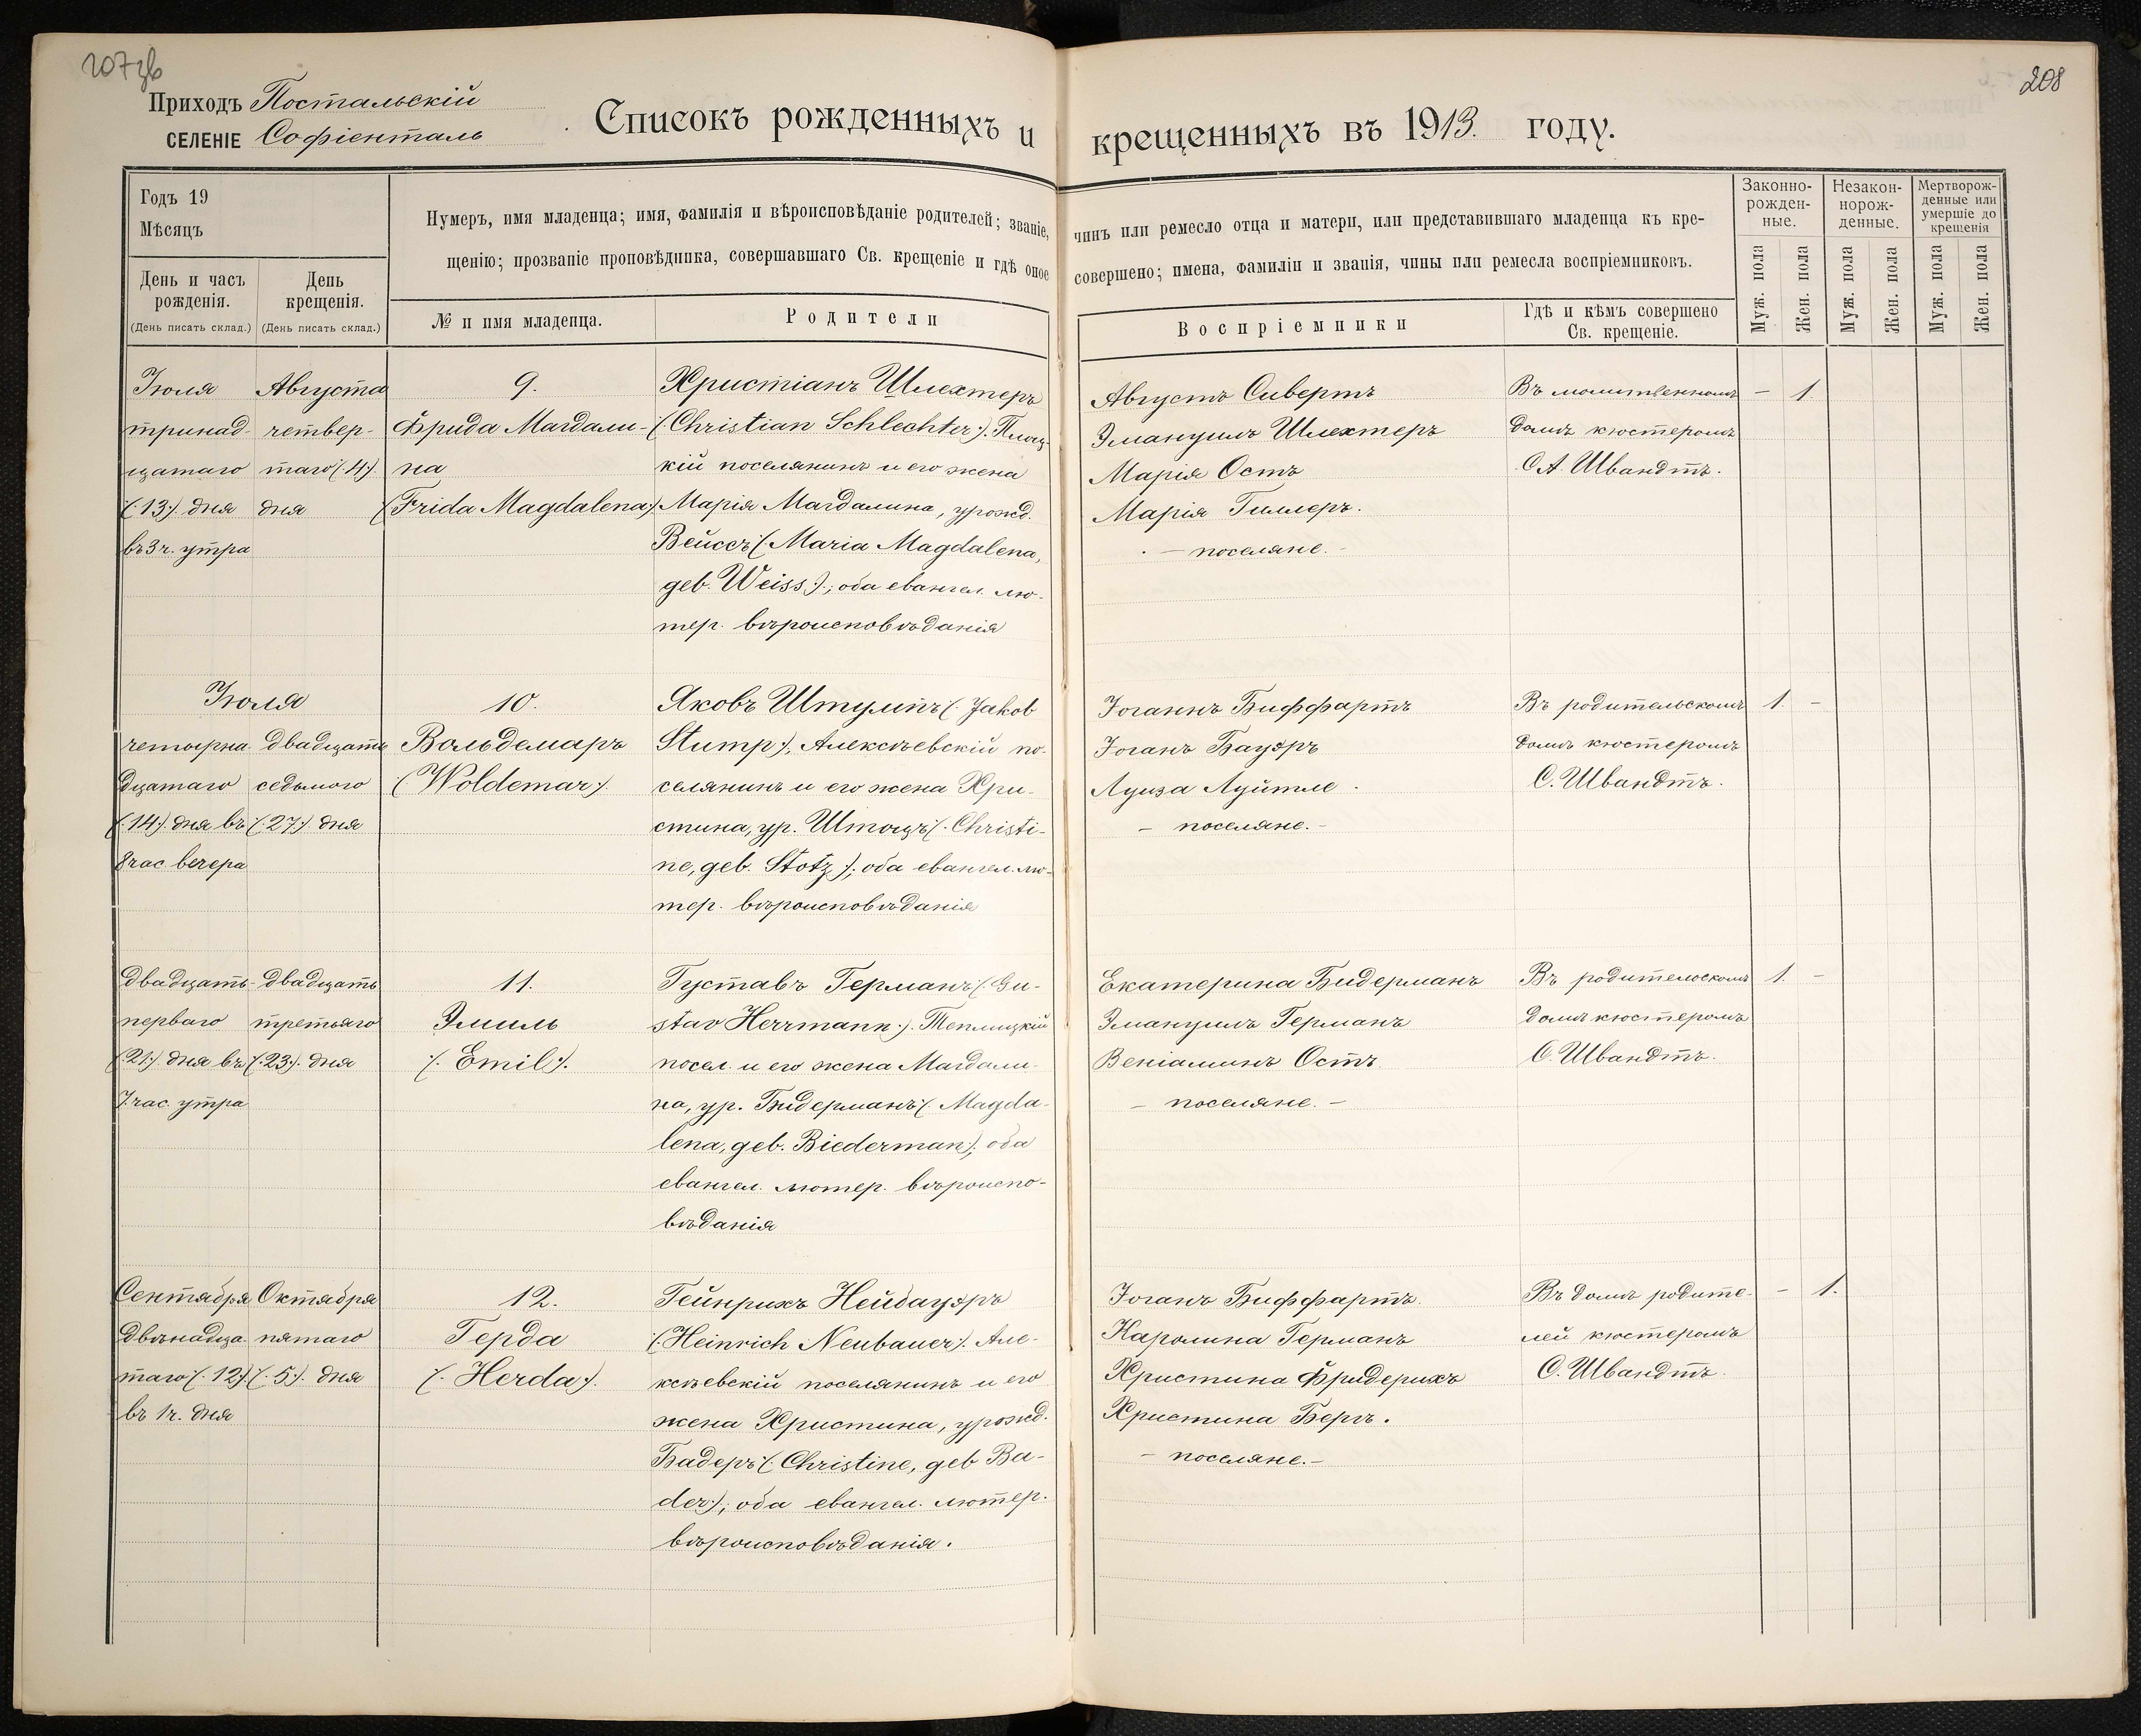 207зв
208
Приходъ Постальскій
СЕЛЕНІЕ Софіенталь
Списокъ рожденныхъ и крещенныхъ въ 1913. году.
Годъ 19
Мѣсяцъ
День и часъ рожденія.
(День писать склад.)
День крещенія.
(День писать склад.)
Нумеръ, имя младенца; имя, фамилія и вѣроисповѣданіе родителей; званіе, чинъ или ремесло отца и матери, или представившаго младенца къ кре-
щенію; прозваніе проповѣдника, совершавшаго Св. крещеніе и гдѣ оное совершено; имена, фамиліи и званія, чины или ремесла воспріемниковъ.
№ и имя младенца.
Родители
Воспріемники
Гдѣ и кѣмъ совершено
Св. крещеніе.
Законно-
рожден-
ные.
Незакон-
норож-
денные.
Мертворож-
денные или
умершіе до
крещенія
Муж. пола
Жен. пола
Муж. пола
Жен. пола
Муж. пола
Жен. пола
Іюля
тринад-
цатаго
(:13:) дня
въ 3 ч. утра
Августа
четвер-
таго (:4:)
дня
9.
Фрида Магдали-
на
(Frida Magdalena:)
Христіанъ Шлехтеръ
(:Christian Schlechter:). Плоц-
кій поселянинъ и его жена
Марія Магдалина, урожд.
Вейссъ (:Maria Magdalena,
geb. Weiss:); оба евангел. лю-
тер. вѣроисповѣданія
Августъ Сивертъ
Эмануилъ Шлехтеръ
Марія Остъ
Марія Гиллеръ.
— поселяне. —
Въ молитвенномъ
домѣ кюстеромъ
С.А. Швандтъ.
— 1.
Іюля
четырна-
дцатаго
(:14:) дня въ
8 час. вечера
двадцать
седьмого
(:27:) дня
10.
Вольдемаръ
(:Woldemar:).
Яковъ Штумпъ (:Jakob
Stump:), Алексѣевскій по-
селянинъ и его жена Хри-
стина, ур. Штоцъ (:Christi-
ne, geb. Stotz:); оба евангел. лю-
тер. вѣроисповѣданія
Іоганнъ Биффартъ
Іоганъ Бауэръ
Луиза Луйтле.
— поселяне. —
Въ родительскомъ
домѣ кюстеромъ
С. Швандтъ.
1. —
двадцать
перваго
(:21:) дня въ
7 час. утра
двадцать
третьяго
(:23:). дня
11.
Эмиль
(:Emil:).
Густавъ Германъ (:Gu-
stav Herrmann:). Теплицкій
посел. и его жена Магдали-
на, ур. Бидерманъ (:Magda-
lena, geb. Biederman:); оба
евангел. лютер. вѣроиспо-
вѣданія
Екатерина Бидерманъ
Эмануилъ Германъ
Веніаминъ Остъ
— поселяне. —
Въ родительскомъ
домѣ кюстеромъ
С. Швандтъ.
1. —
Сентября
двѣнадца-
таго (:12:)
въ 1 ч. дня
Октября
пятаго
(:5:). дня
12.
Герда
(:Herda:).
Гейнрихъ Нейбауэръ
(:Heinrich Neubauer:). Але-
ксѣевскій поселянинъ и его
жена Христина, урожд.
Бадеръ (:Christine, geb Ba-
der:); оба евангел. лютер.
вѣроисповѣданія.
Іоганъ Биффартъ.
Каролина Германъ
Христина Фридерихъ
Христина Бергъ.
— поселяне. —
Въ домѣ родите-
лей кюстеромъ
С. Швандтъ.
— 1.